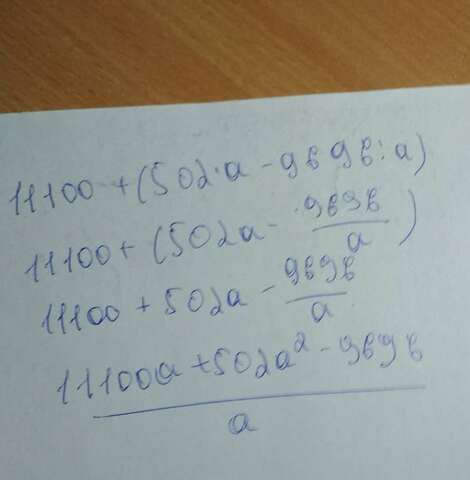 11100 + (502·a - 9696 : a)
11100 + (502a - 9696/a)
11100 + 502a - 9696/a
11100a + 502a² - 9696
a